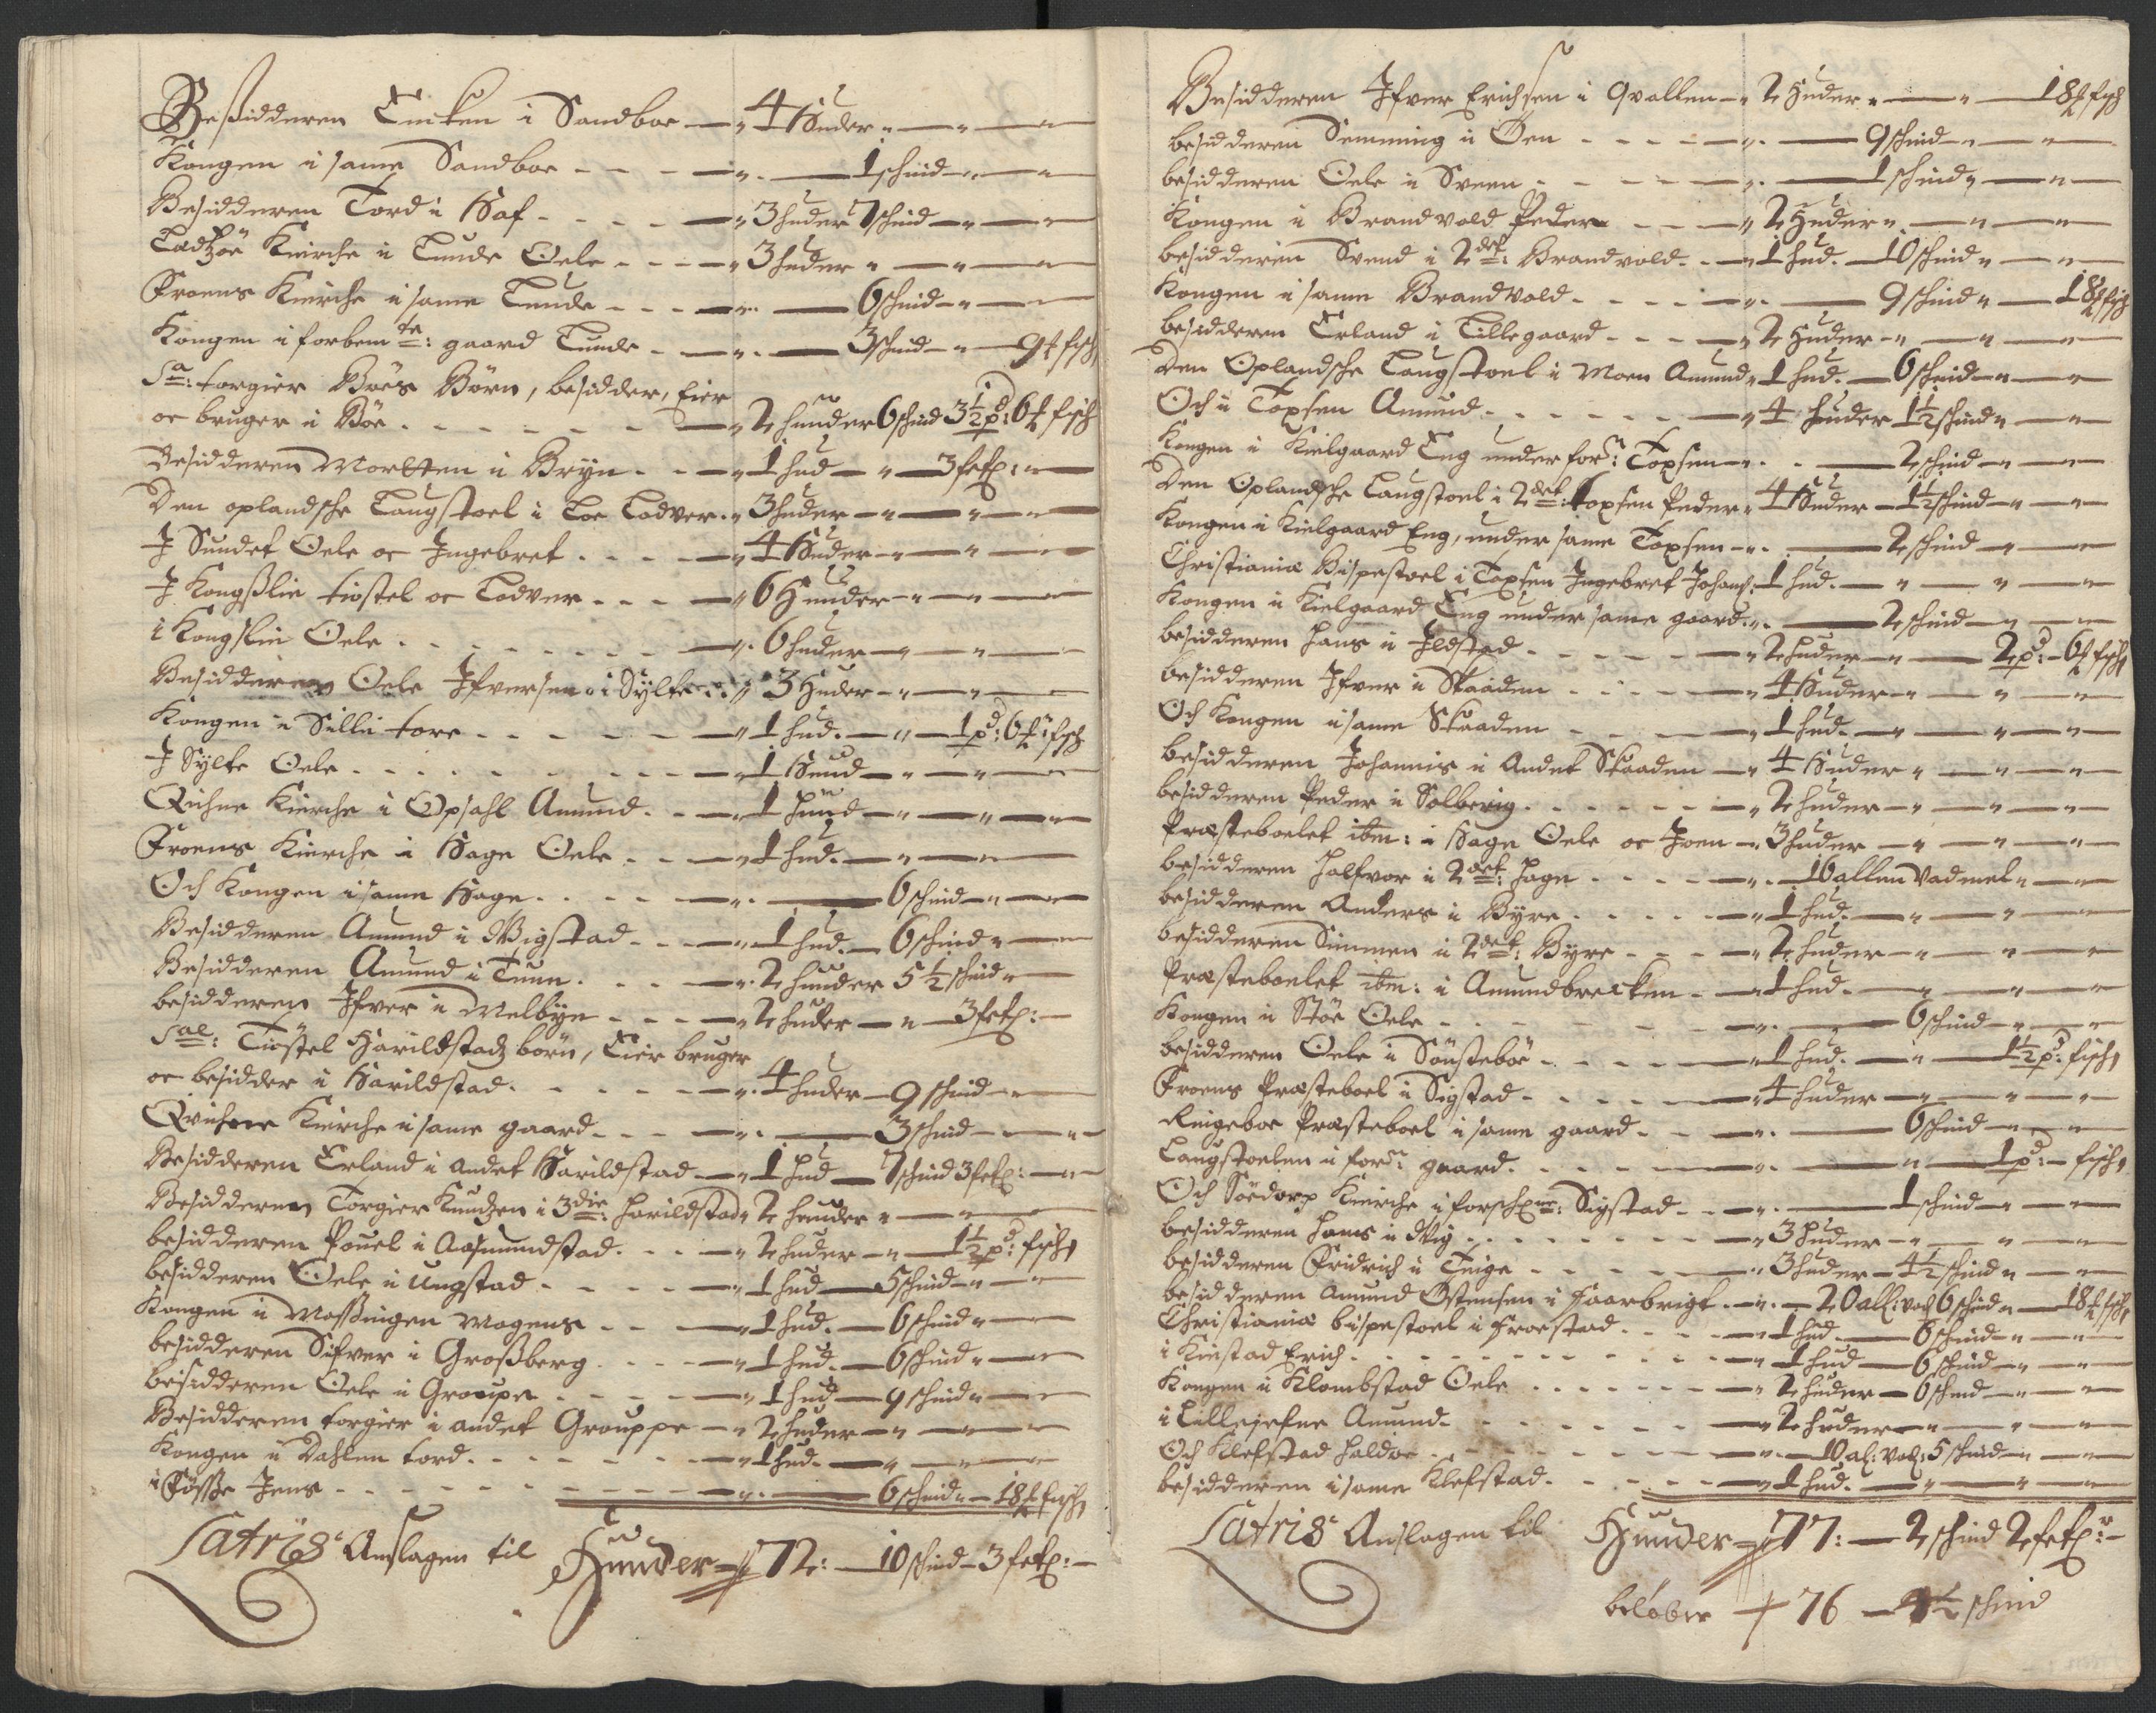 Besidderen Encken i Sandboe — 4 Huder
Kongen i same Sandboe — 1 schind
Besidderen Tord i Haf — 3 huder 7 schind
Ladtzøe Kirche i Lunde Oele — 3 huder
Froens Kirche i same Lunde — 6 schind
Kongen i forbemte: gaard Lunde — 3 schind — 9 ℔ fisch
Sa: torgier Böes Börn, besidder, Eier
oc bruger i Böe — 2 hunder 6 schind 3½ pd: 6 ℔ fisch
Besidderen Mortten i Bryn — 1 hud — 3 fetz:
Den oplandsche Laugstoel i Loe Lodver — 3 huder
J Sundet Oele oc Ingebret — 4 Huder
J Kongsslie tiostel oc Lodver — 6 Hunder
i Kongslie Oele — 6 huder
Besidderen Oele Ifversen i Sylte — 3 Huder
Kongen i Sillie tore — 1 hud. — 1 pd: 6 ℔ fisch
J Sylte Oele — 1 Hud
Quihne Kirche i Opsahl Amund — 1 hund
Froens Kirche i Hage Oele — 1 hud.
Och Kongen i same Hage — 6 schind
Besidderen Amund i Wigstad — 1 hud. — 6 schind
Besidderen Amund i Tuun — 2 hunder 5½ schind
besidderen Ifver i Melbye — 2 huder — 3 fetz:
Sal: Tiöstel Harildstads börn, Eier bruger
oc besidder i Harildstad — 4 huder — 9 schind
Qvihne Kirche i same gaard — 3 schind
Besidderen Erland i andet Harildstad — 1 hud — 7 schind 3 fetz:
Besidderen Torgier Knudzen i 3die: harildstad 2 hunder
besidderen Pouel i Aasmundstad — 2 huder — 1½ pd: fisch
besidderen Oele i Ungstad — 1 hud — 5 schind
Kongen i Mossingen Mogens — 1 hud. — 6 schind
besidderen Sifver i Grossberg — 1 hud. — 6 schind
besidderen Oele i Groupe — 1 hud — 9 schind
Besidderen torgier i andet Grouppe — 2 huder
Kongen i Dahlen tord — 1 hud.
i Fösse Jens — 6 schind — 18 ℔ fisch
Latris Anslagen til Hunder — 72: — 10 schind — 3 fetz:
Besidderen Ifver Erichsen i Qvallen — 2 Huder — 18 ℔ fisch
besidderen Semming i Öen — 9 schind
besidderen Oele i Sveen — 1 schind
Kongen i Brandvold Peder — 2 Huder
besidderen Svend i 2det: Brandvold — 1 hud. — 10 schind
Kongen i same Brandvold — 9 schind — 18 ℔ fisch
besidderen Erland i Lillegaard — 2 Huder
Den Oplandsche Laugstoel i Moen Amund 1 hud. — 6 schind
Och i Topsen Amund — 4 huder 1½ schind
Kongen i Kielgaard Eng under forn: Topsen — 2 schind
Den Oplandsche Laugstoel i 2det: topsen Peder 4 Huder — 1½ schind
Kongen i Kielgaard Eng, under same Topsen — 2 schind
Christiania Bispestoel i Topsen Ingebret Johans: 1 hud.
Kongen i Kielgaard Eng under same gaard — 2 schind
besidderen Hans i Ildstad — 2 huder — 2 pd: — 6 ℔ fisch
besidderen Ifver i Skaaden — 4 Huder
Och Kongen i same Skaaden — 1 hud.
besidderen Johannis i Andet Skaaden — 4 Huder
besidderen Peder i Solberig — 2 huder
Præsteboelet ibm: i Hage Oele oc Joen — 3 huder
besidderen Halfvor i 2det: hage — 16 allen vadmel
besidderen Anders i Byre — 1 hud.
besidderen Simmen i 2det: Byre — 2 huder
Præsteboelet ibm: i Amundbrecken — 1 hud.
Kongen i Stöe Oele — 6 schind
besidderen Oele i Sönsteböe — 1 hud. — 1½ pd: fisch
Froens Præsteboel i Sigstad — 4 huder
Ringeboe Præsteboel i same gaard — 6 schind
Laugstoelen i forn: gaard — 1 pd: — fisch
Och Södorp Kirche i forschrne: Sigstad — 1 schind
besidderen Hans i Wiig — 3 huder
besidderen Fridrich i Teige — 3 huder — 4½ schind
besidderen Amund Östensen i Haarbrigt — 20 all: vad 6 schind — 18 ℔ fisch
Christiania bispestoel i Froestad — 1 hud — 6 schind
i Kiestad Erich — 1 hud — 6 schind
Kongen i Klombstad Oele — 2 huder — 6 schind
i Lillejefne Amund — 2 huder
Och Klefstad Haldor — 10 al: vad: 5 schind
besidderen i same Klefstad — 1 hud.
Latris Anslagen til Hunder — 77: — 2 schind 2 fetz:
beløber — 76 — 4½ schind